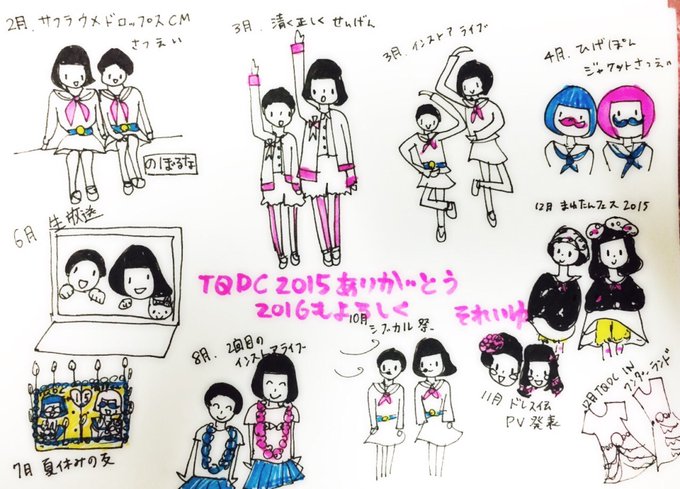 2月. サクラウメドロップスCM
さつえい
のぼるな
3月. 清く正しく せいげん
3月. インストアライブ
4月. ひげぽん
ジャケットさつえい
6月 生放送
TQDC 2015 ありがとう
2016もよろしく
それいゆ
12月 まゆたんフェス 2015
7月 夏休みの友
8月. 2回目の
インストアライブ
10月
シブカル祭
11月 ドレス伝
PV発表
12月 TQDC IN
ワンダーランド